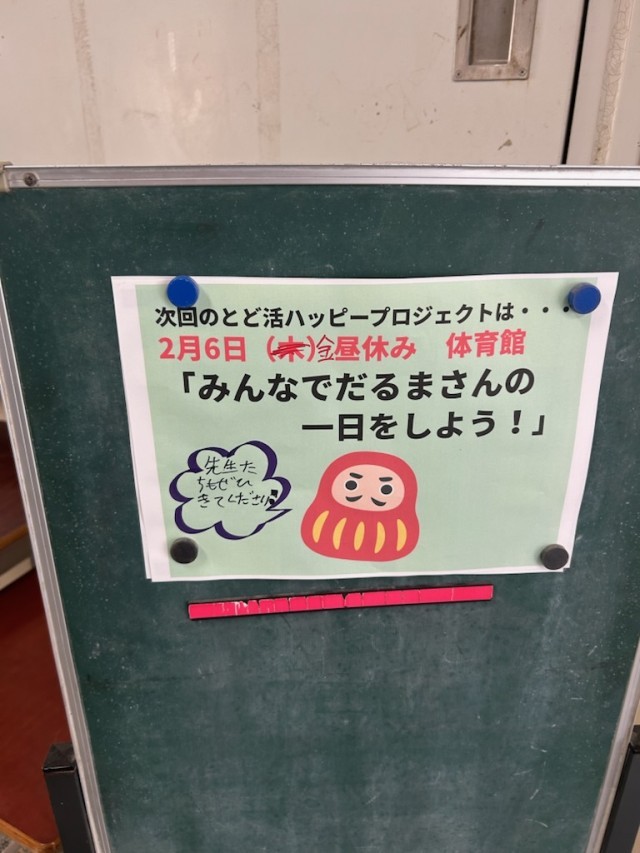 次回のとど活ハッピープロジェクトは・・・
2月6日（木）金昼休み　体育館
「みんなでだるまさんの
一日をしよう！」
先生た
ちもぜひ
きてください